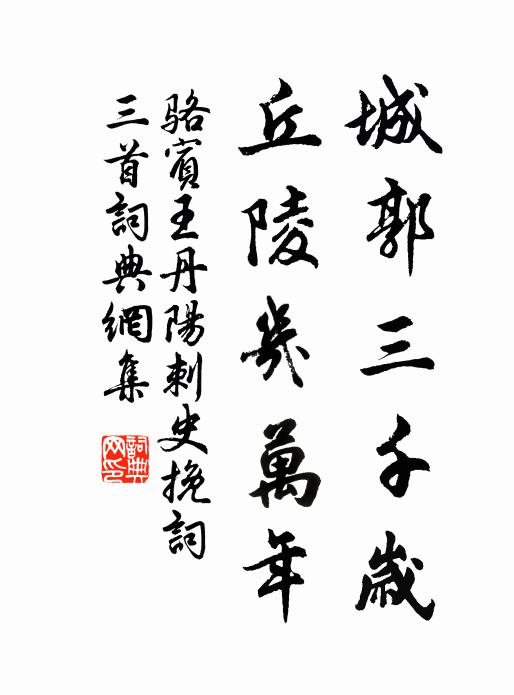 城郭三千歲
丘陵幾萬年
駱賓王丹陽刺史挽詞
三首詞典網集
詞典网印